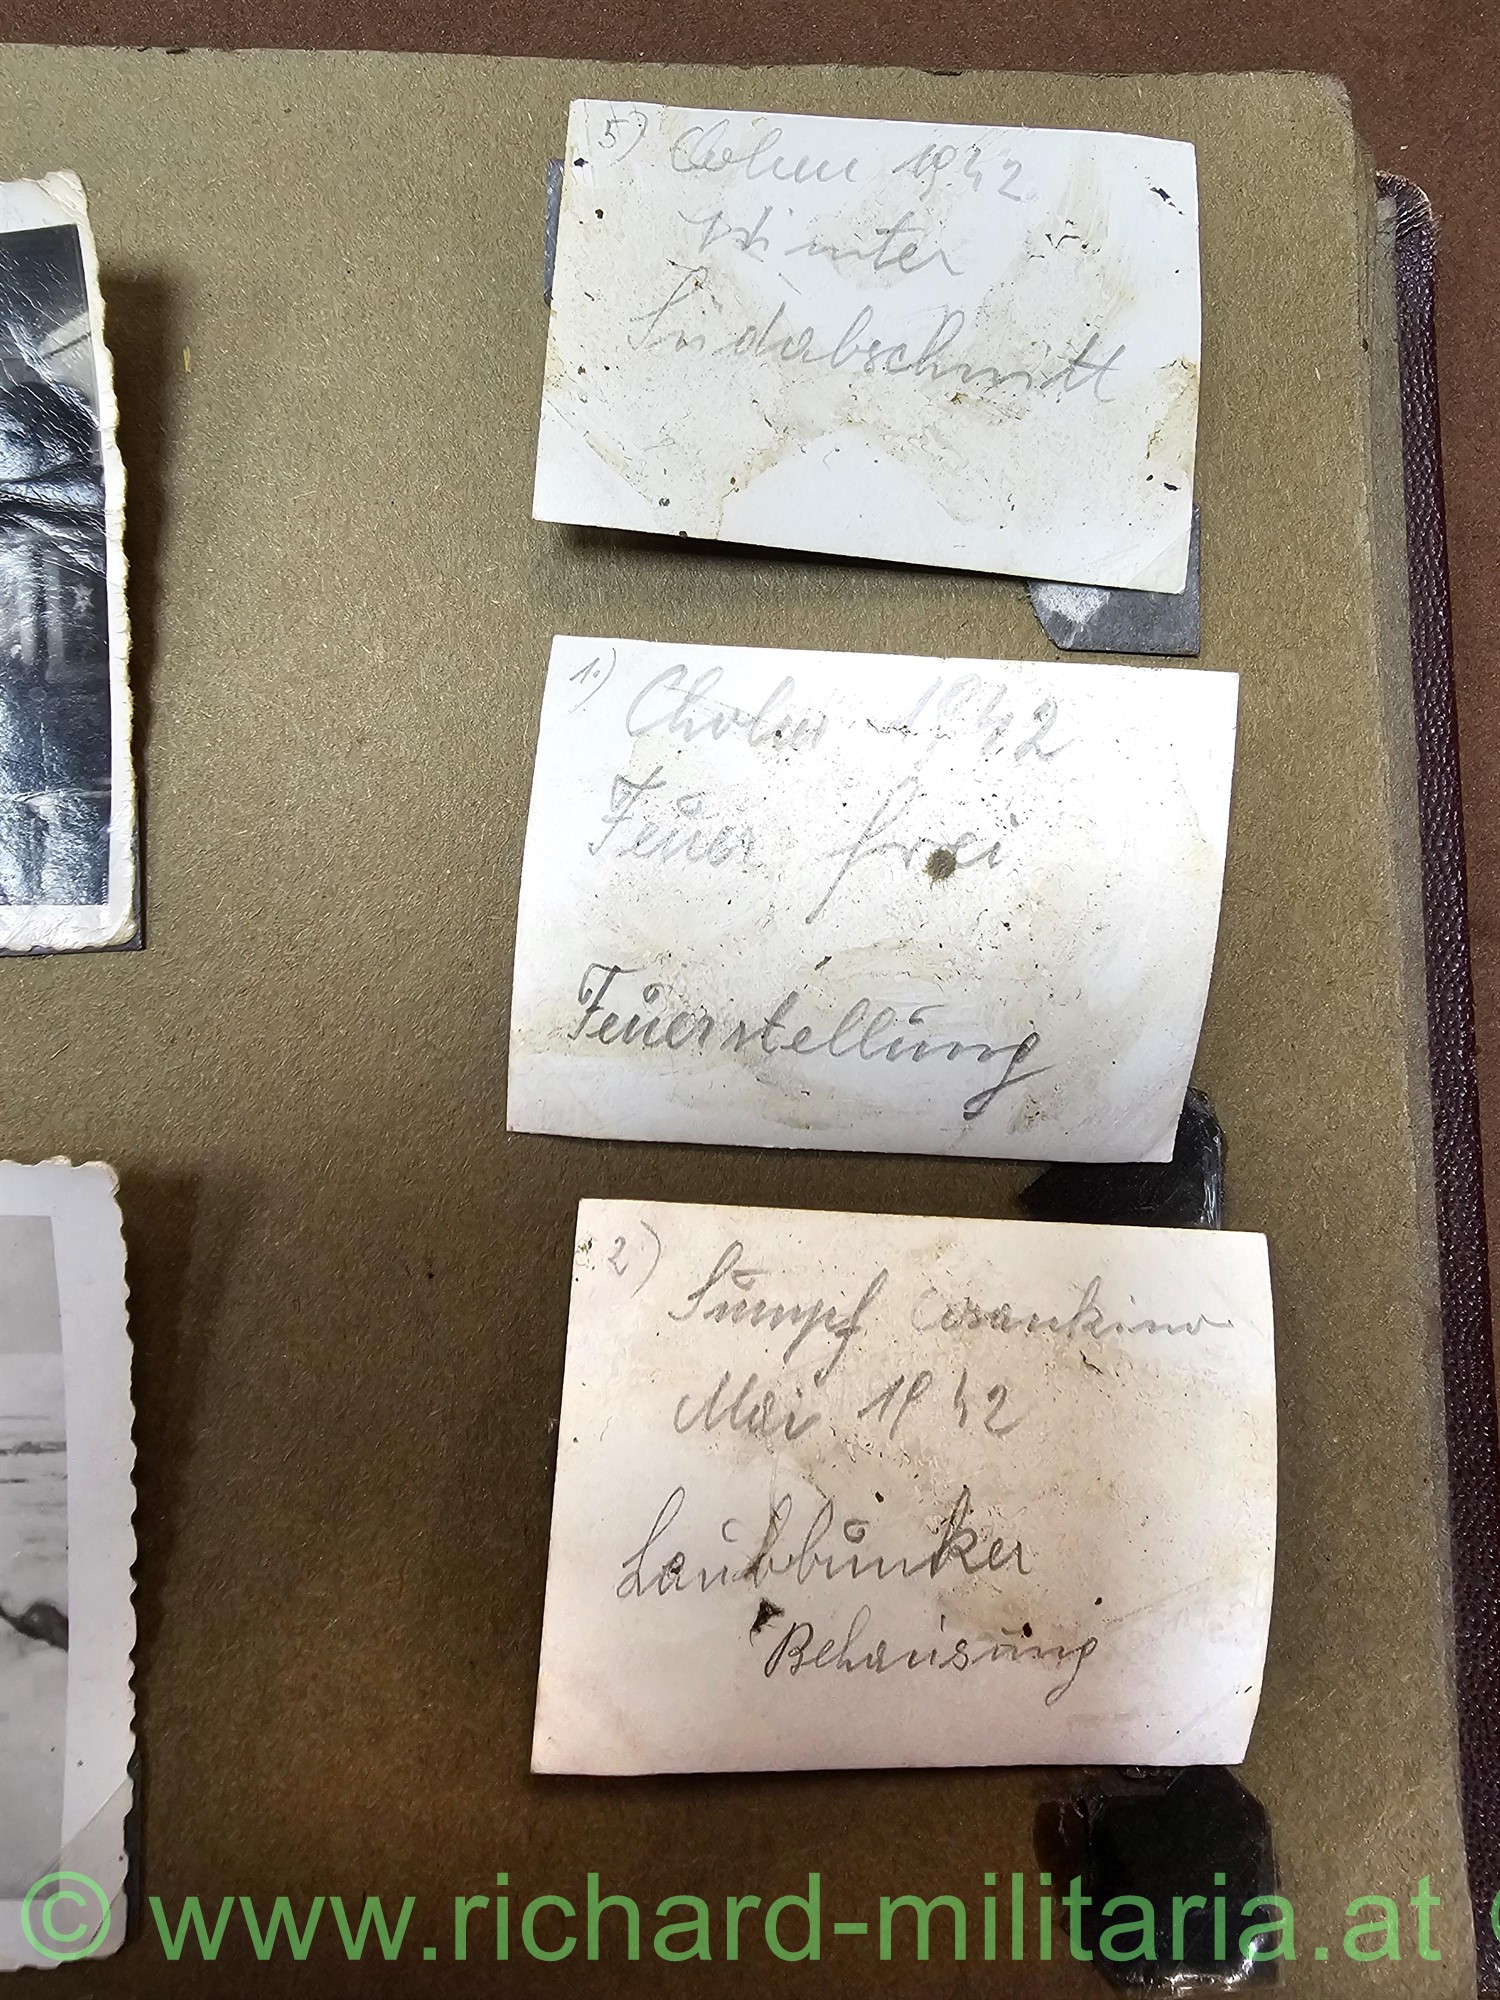 5) Cholm 1942
Winter
Südabschnitt
1.) Cholm 1942
Feuer frei
Feuerstellung
2) Sumpf
Mai 1942
Laubbunker
Behausung
© www.richard-militaria.at ©